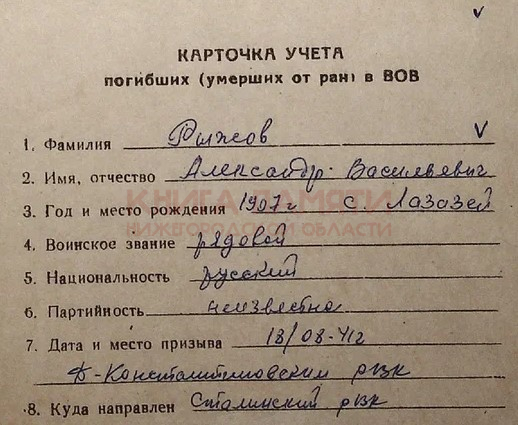 КАРТОЧКА УЧЕТА
погибших (умерших от ран) в ВОВ
1. Фамилия Рыжов
2. Имя, отчество Александр Васильевич
3. Год и место рождения 1907 г с Лазазей
КНИГА ПАМЯТИ
НИЖЕГОРОДСКОЙ ОБЛАСТИ
4. Воинское звание рядовой
5. Национальность русский
6. Партийность неизвестно
7. Дата и место призыва 18/08-41г
Д-Константиновским рвк
8. Куда направлен Сталинский рвк